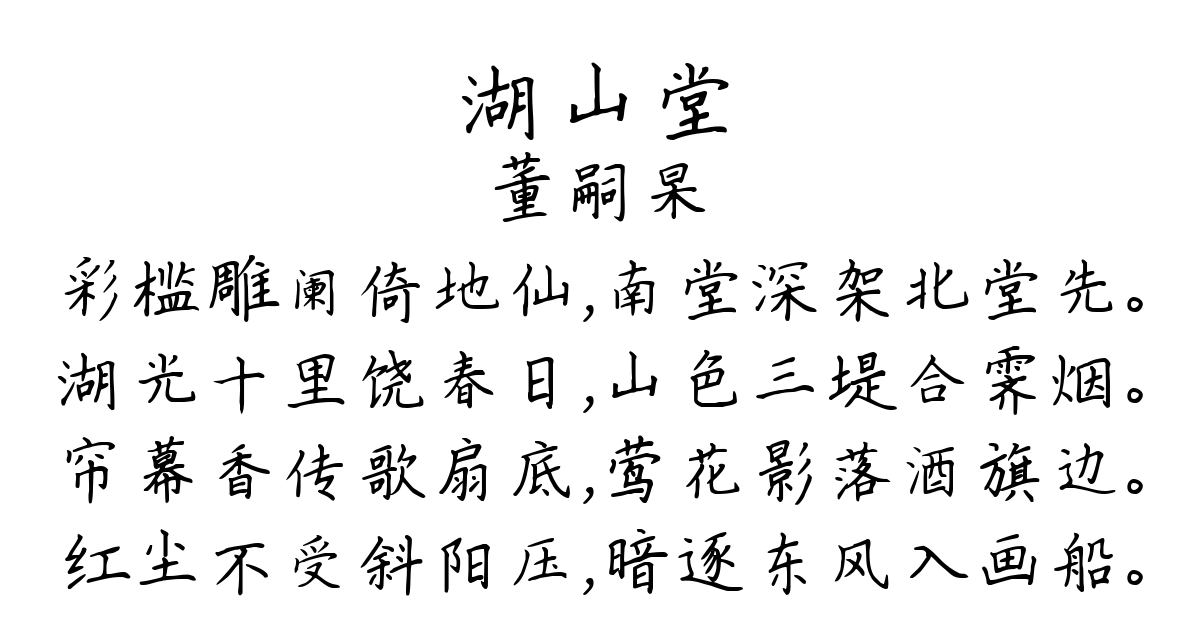 湖山堂
董嗣杲
彩槛雕阑倚地仙,南堂深架北堂先。
湖光十里饶春日,山色三堤合霁烟。
帘幕香传歌扇底,莺花影落酒旗边。
红尘不受斜阳压,暗逐东风入画船。